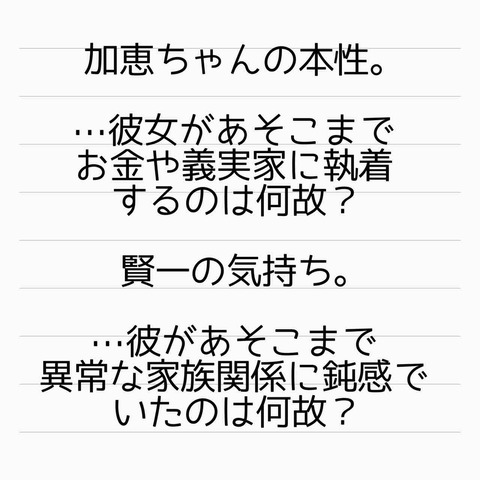 加恵ちゃんの本性。
…彼女があそこまで
お金や義実家に執着
するのは何故？
賢一の気持ち。
…彼があそこまで
異常な家族関係に鈍感で
いたのは何故？